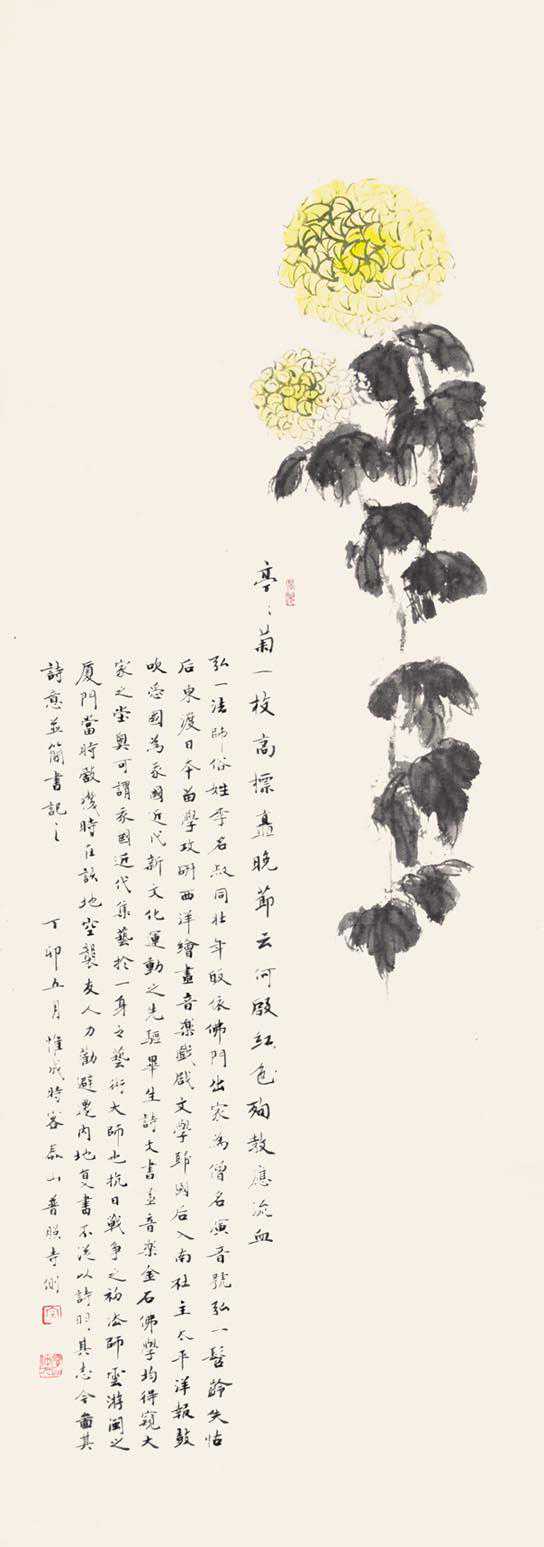 亭〻菊一枝高標矗晚節云何殷紅色殉教應流血
弘一法師俗姓李名叔同壯年皈依佛門出家為僧名演音號弘一髫齡失怙
后東渡日本留學攻研西洋繪畫音樂戲劇文學歸國后入南社主太平洋報鼓
吹愛國為我國近代新文化運動之先驅畢生詩文書音樂金石佛學均得窺大
家之堂奧可謂我國近代集藝於一身之藝術大師也抗日戰争之初法師雲游閩之
厦門當時敵機時在該地空襲友人力勸避内地复書不從以詩明其志今畫其
詩意並簡書記之 丁卯五月惟成時客泰山普照寺側